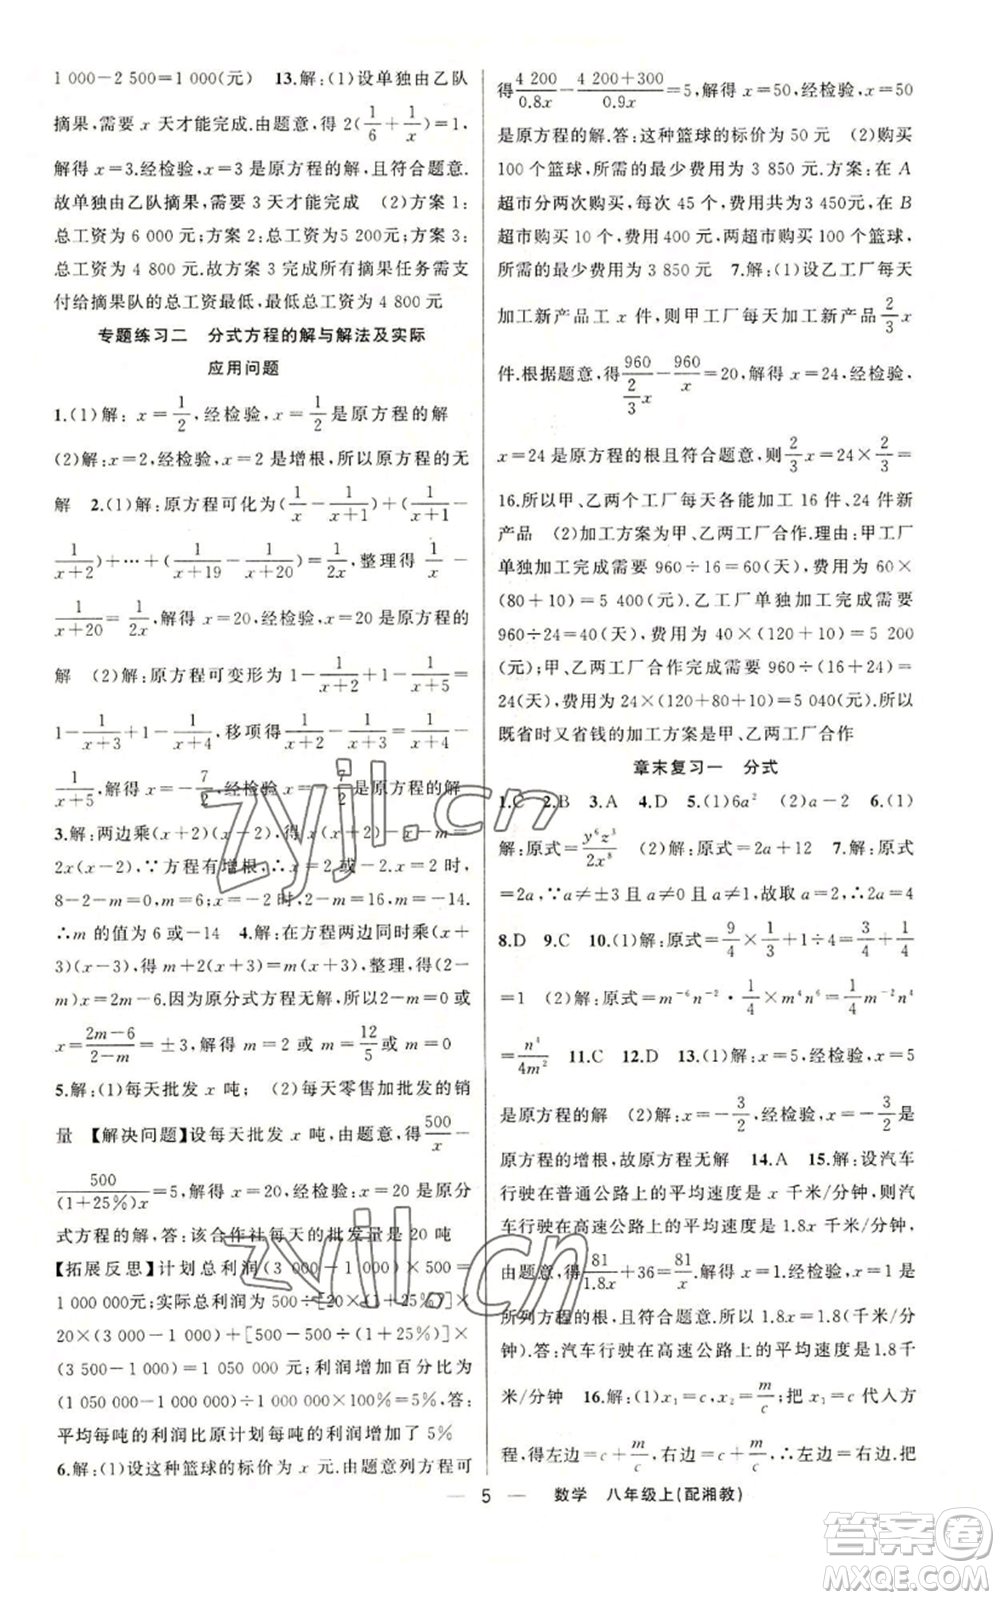 1 000－2 500＝1 000(元)　13.解：(1)设单独由乙队
摘果，需要 x 天才能完成.由题意，得 2(1/6＋1/x)＝1，
解得 x＝3.经检验，x＝3 是原方程的解且符合题意.
故单独由乙队摘果，需要 3 天才能完成　(2)方案 1：
总工资为 6 000 元；方案 2：总工资为5 200元；方案 3：
总工资为 4 800 元.故方案 3 完成所有摘果任务需支
付给摘果队的总工资最低，最低总工资为 4 800 元
专题练习二　分式方程的解与解法及实际
应用问题
1.(1)解：x＝1/2，经检验，x＝1/2是原方程的解
(2)解：x＝2，经检验，x＝2 是增根，所以原方程的无
解　2.(1)解：原方程可化为(1/x－1/(x＋1))＋(1/(x＋1)－
1/(x＋2))＋…＋(1/(x＋19)－1/(x＋20))＝1/2x，整理得 1/x－
1/(x＋20)＝1/2x，解得 x＝20，经检验，x＝20 是原方程的
解　(2)解：原方程可变形为 1－1/(x＋2)＋1－1/(x＋5)＝
1－1/(x＋3)＋1－1/(x＋4)，移项得 1/(x＋3)－1/(x＋2)＝
1/(x＋5)，解得 x＝－7/2，经检验 x＝－7/2是原方程的解
3.解：两边乘(x＋2)(x－2)，得 x(x＋2)－m＝
2x(x－2)，∵方程有增根，∴x＝2 或 x＝－2.当 x＝2 时，
8－2－m＝0，m＝6；当 x＝－2 时，m＝－14.
∴m 的值为 6 或－14　4.解：在方程两边同时乘(x＋
3)(x－3)，得 m＋2(x＋3)＝m(x＋3)，化简，得(2－
m)x＝2m－6.因为原分式方程无解，所以2－m＝0 或
x＝(2m－6)/(2－m)＝±3，解得 m＝2 或 m＝12/5或 m＝0
5.解：(1)每天批发 x 吨；　(2)每天零售加批发的销
量　【解决问题】设每天批发 x 吨，由题意，得500/x－
500/((1＋25%)x)＝5，解得 x＝20，经检验：x＝20 是原分
式方程的解，答：该合作社每天的批发量是 20 吨
【拓展反思】计划总利润(3 000－1 000)×500＝
1 000 000元；实际总利润为 500÷[20×(1＋25%)]×
20×(3 000－1 000)＋[500－500÷(1＋25%)]×
(3 500－1 000)＝1 050 000 元；利润增加百分比为
(1 050 000－1 000 000)÷1 000 000×100%＝5%，答：
平均每吨的利润比原计划每吨的利润增加了 5%
6.解：(1)设这种篮球的标价为 x 元.由题意列方程可
得4 200/0.8x－(4 200＋300)/0.9x＝5，解得 x＝50，经检验，x＝50
是原方程的解.答：这种篮球的标价为 50 元　(2)购买
100 个篮球，所需的最少费用为 3 850 元.方案：在 A
超市分两次购买，每次 45 个，费用共为3 450元，在 B
超市购买 10 个，费用 400 元，两超市购买 100 个篮球，
所需的最少费用为 3 850 元　7.解：(1)设乙工厂每天
加工新产品 x 件，则甲工厂每天加工新产品2/3x
件.根据题意，得960/(2/3x)－960/x＝20，解得 x＝24，经检验，
x＝24 是原方程的根且符合题意，则2/3x＝24×2/3＝
16.所以甲、乙两个工厂每天各能加工 16 件、24 件新
产品　(2)加工方案为甲、乙两工厂合作.理由：甲工厂
单独加工完成需要 960÷16＝60(天)，费用为 60×
(80＋10)＝5 400(元).乙工厂单独加工完成需要
960÷24＝40(天)，费用为 40×(120＋10)＝5 200
(元)；甲、乙两工厂合作完成需要 960÷(16＋24)＝
24(天)，费用为 24×(120＋80＋10)＝5 040(元).所以
既省时又省钱的加工方案是甲、乙两工厂合作
章末复习一　分式
1.C　2.B　3.A　4.D　5.(1)6a²　(2)a－2　6.(1)
解：原式＝y⁶z³/2x⁸　(2)解：原式＝2a＋12　7.解：原式
＝2a，∵a≠±3 且 a≠1，故取 a＝2，∴2a＝4
8.D　9.C　10.(1)解：原式＝9/4×1/3＋1÷4＝3/4＋1/4
＝1　(2)解：原式＝m⁻⁶n⁻²·1/4×m⁴n⁶＝1/4m⁻²n⁴
＝n⁴/4m²　11.C　12.D　13.(1)解：x＝5，经检验，x＝5
是原方程的解　(2)解：x＝－3/2，经检验，x＝－3/2是
原方程的增根，故原方程无解　14.A　15.解：设汽车
行驶在普通公路上的平均速度是 x 千米/分钟，则汽
车行驶在高速公路上的平均速度是 1.8x 千米/分钟，
由题意，得81/1.8x＋36＝81/x.解得 x＝1.经检验，x＝1 是
所列方程的根，且符合题意.所以 1.8x＝1.8(千米/分
钟).答：汽车行驶在高速公路上的平均速度是 1.8千
米/分钟　16.解：(1)x₁＝c，x₂＝m/c；把 x₁＝c 代入方
程，得左边＝c＋m/c，右边＝c＋m/c，∴左边＝右边，
— 5 —　数学　八年级上(配湘教)
zyjl.cn
zyjl.cn
答案圈
MXQE.COM